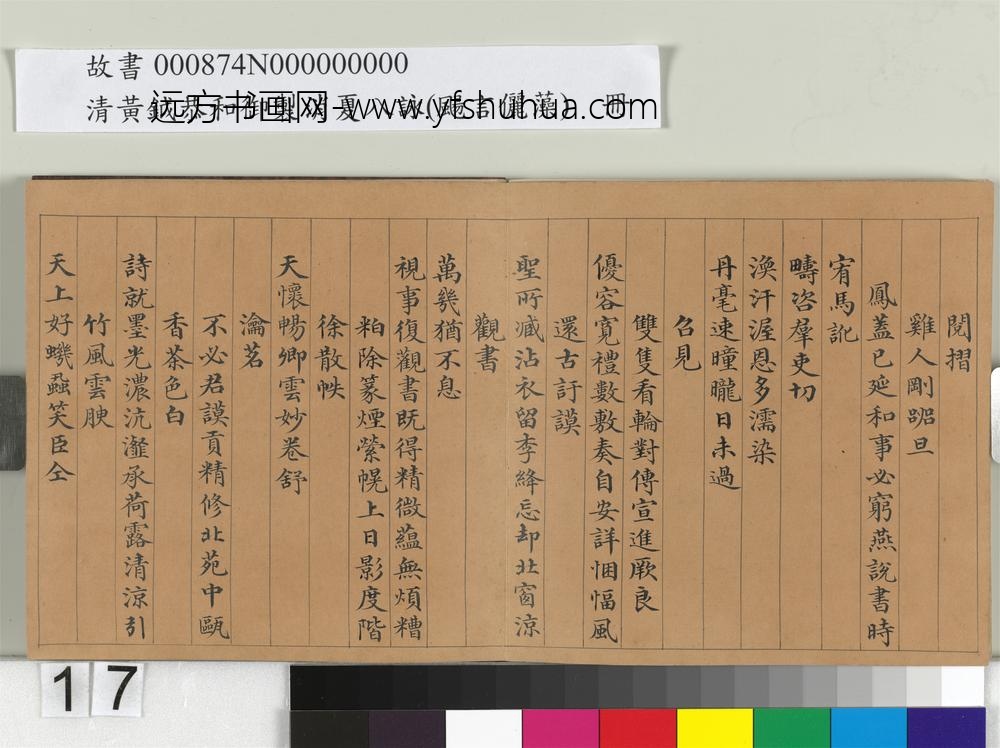 故書 000874N000000000
清黃鉞恭和御製消夏八詠
远方书画网-www.yfshuhua.com
閱摺
雞人剛唱旦
鳳蓋已延和事必窮燕說書時
宥馬訛
疇咨羣吏切
渙汗渥恩多濡染
丹毫速曈曨日未過
召見
雙雙看輪對傳宣進厥良
優容寬禮數敷奏自安詳悃愊風
還古訏謨
聖所臧沾衣留李絳忘却北窗涼
觀書
萬幾猶不息
視事復觀書既得精微蘊無煩糟
粕除篆煙縈幌上日影度階
徐散帙
天懷暢卿雲妙卷舒
瀹茗
不必君謨貢精修北苑中甌
香茶色白
竹風雲腴
詩就墨光濃沆瀣承荷露清涼引
天上好蟣蝨笑臣仝
17